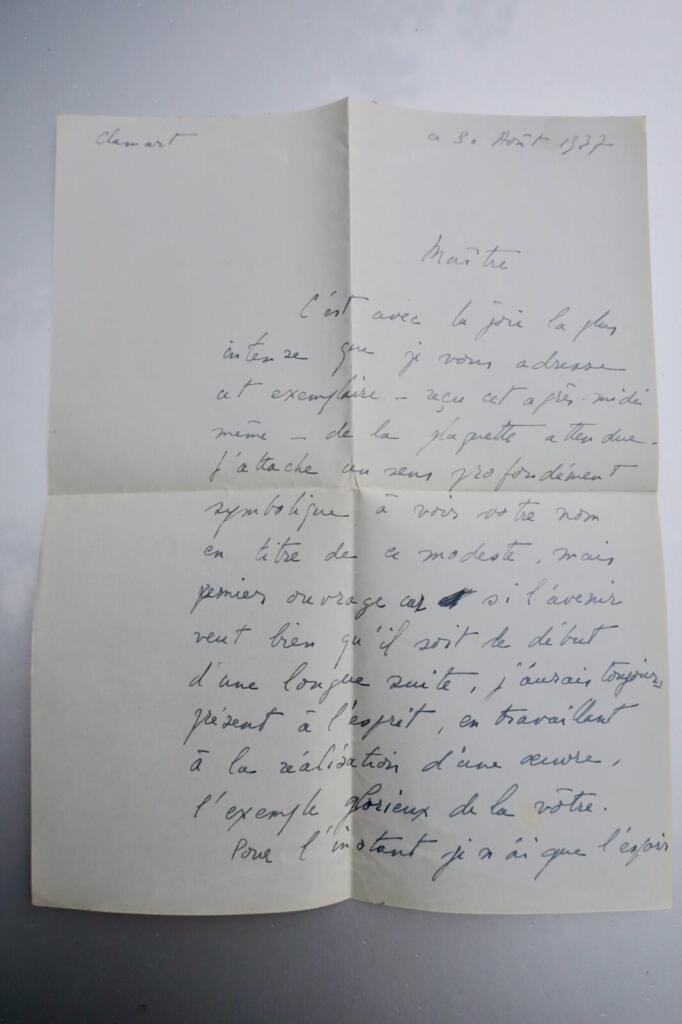 Clamart ce 30 Août 1937
Maître
C'est avec la joie la plus
intense que je vous adresse
cet exemplaire - reçu cet après-midi
même - de la plaquette attendue.
J'attache un sens profondément
symbolique à voir votre nom
en titre de ce modeste, mais
premier ouvrage car si l'avenir
veut bien qu'il soit le début
d'une longue suite, j'aurais toujours
présent à l'esprit, en travaillant
à la réalisation d'une œuvre,
l'exemple glorieux de la vôtre.
Pour l'instant je n'ai que l'espoir